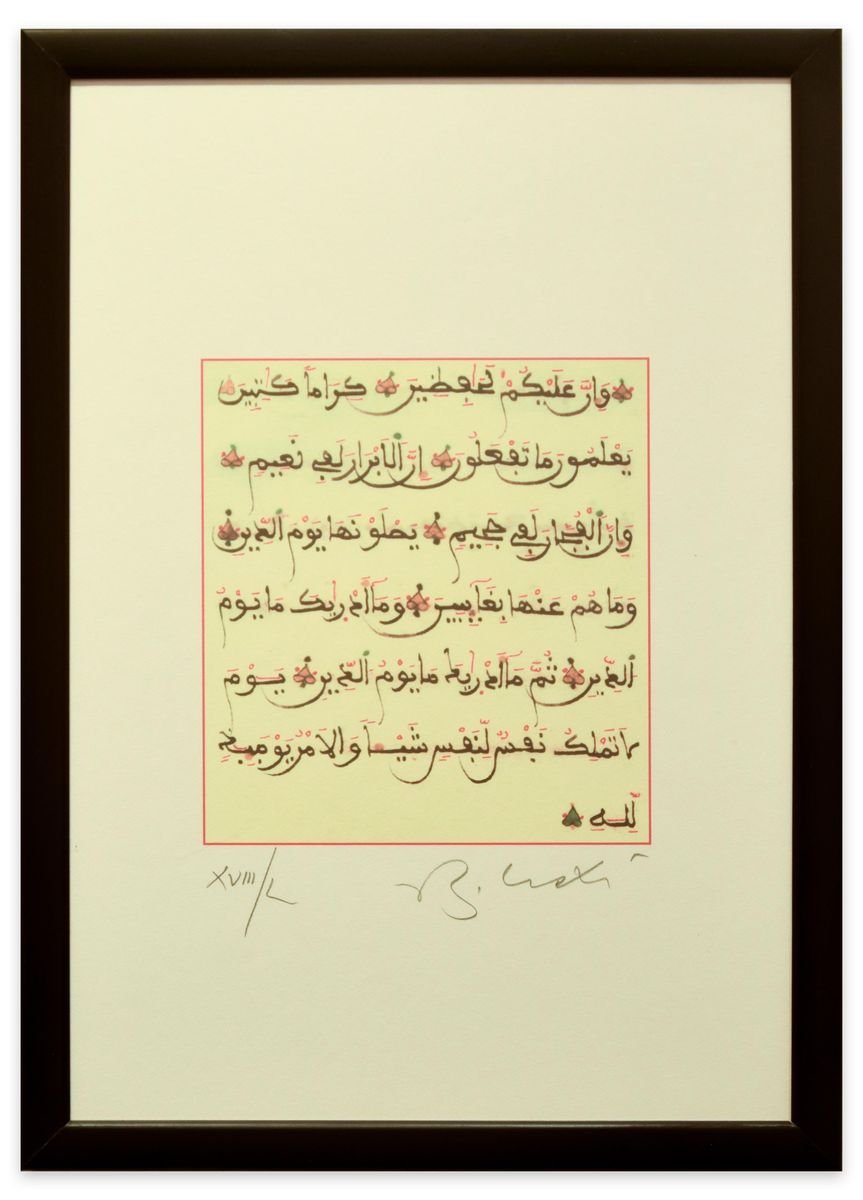 وَإِنَّ عَلَيْكُمْ لَحَٰفِظِينَ كِرَاماً كَٰتِبِينَ
يَعْلَمُونَ مَا تَفْعَلُونَ إِنَّ ٱلَابْرَارَ لَفِے نَعِيمٖ
وَإِنَّ ٱلْفُجَّارَ لَفِے جَحِيمٖ يَصْلَوْنَهَا يَوْمَ ٱلدِّينِ
وَمَا هُمْ عَنْهَا بِغَآئِبِينَ وَمَآ أَدْر۪يٰكَ مَا يَوْمُ
ٱلدِّينِ ثُمَّ مَآ أَدْر۪يٰكَ مَا يَوْمُ ٱلدِّينِ يَوْمَ
لَا تَمْلِكُ نَفْسٞ لِّنَفْسٖ شَيْـٔاً وَالَامْرُ يَوْمَئِذٖ
لِّلهِ
XVIII/L